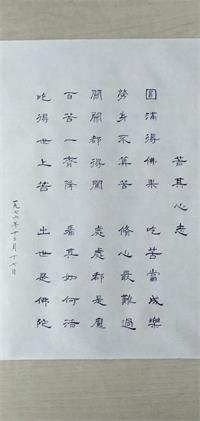 苦其心志
圓滿得佛果 吃苦當成樂
勞身不算苦 修心最難過
關關都得闖 處處都是魔
百苦一齊降 看其如何活
吃得世上苦 出世是佛陀
一九七六年十二月十七日